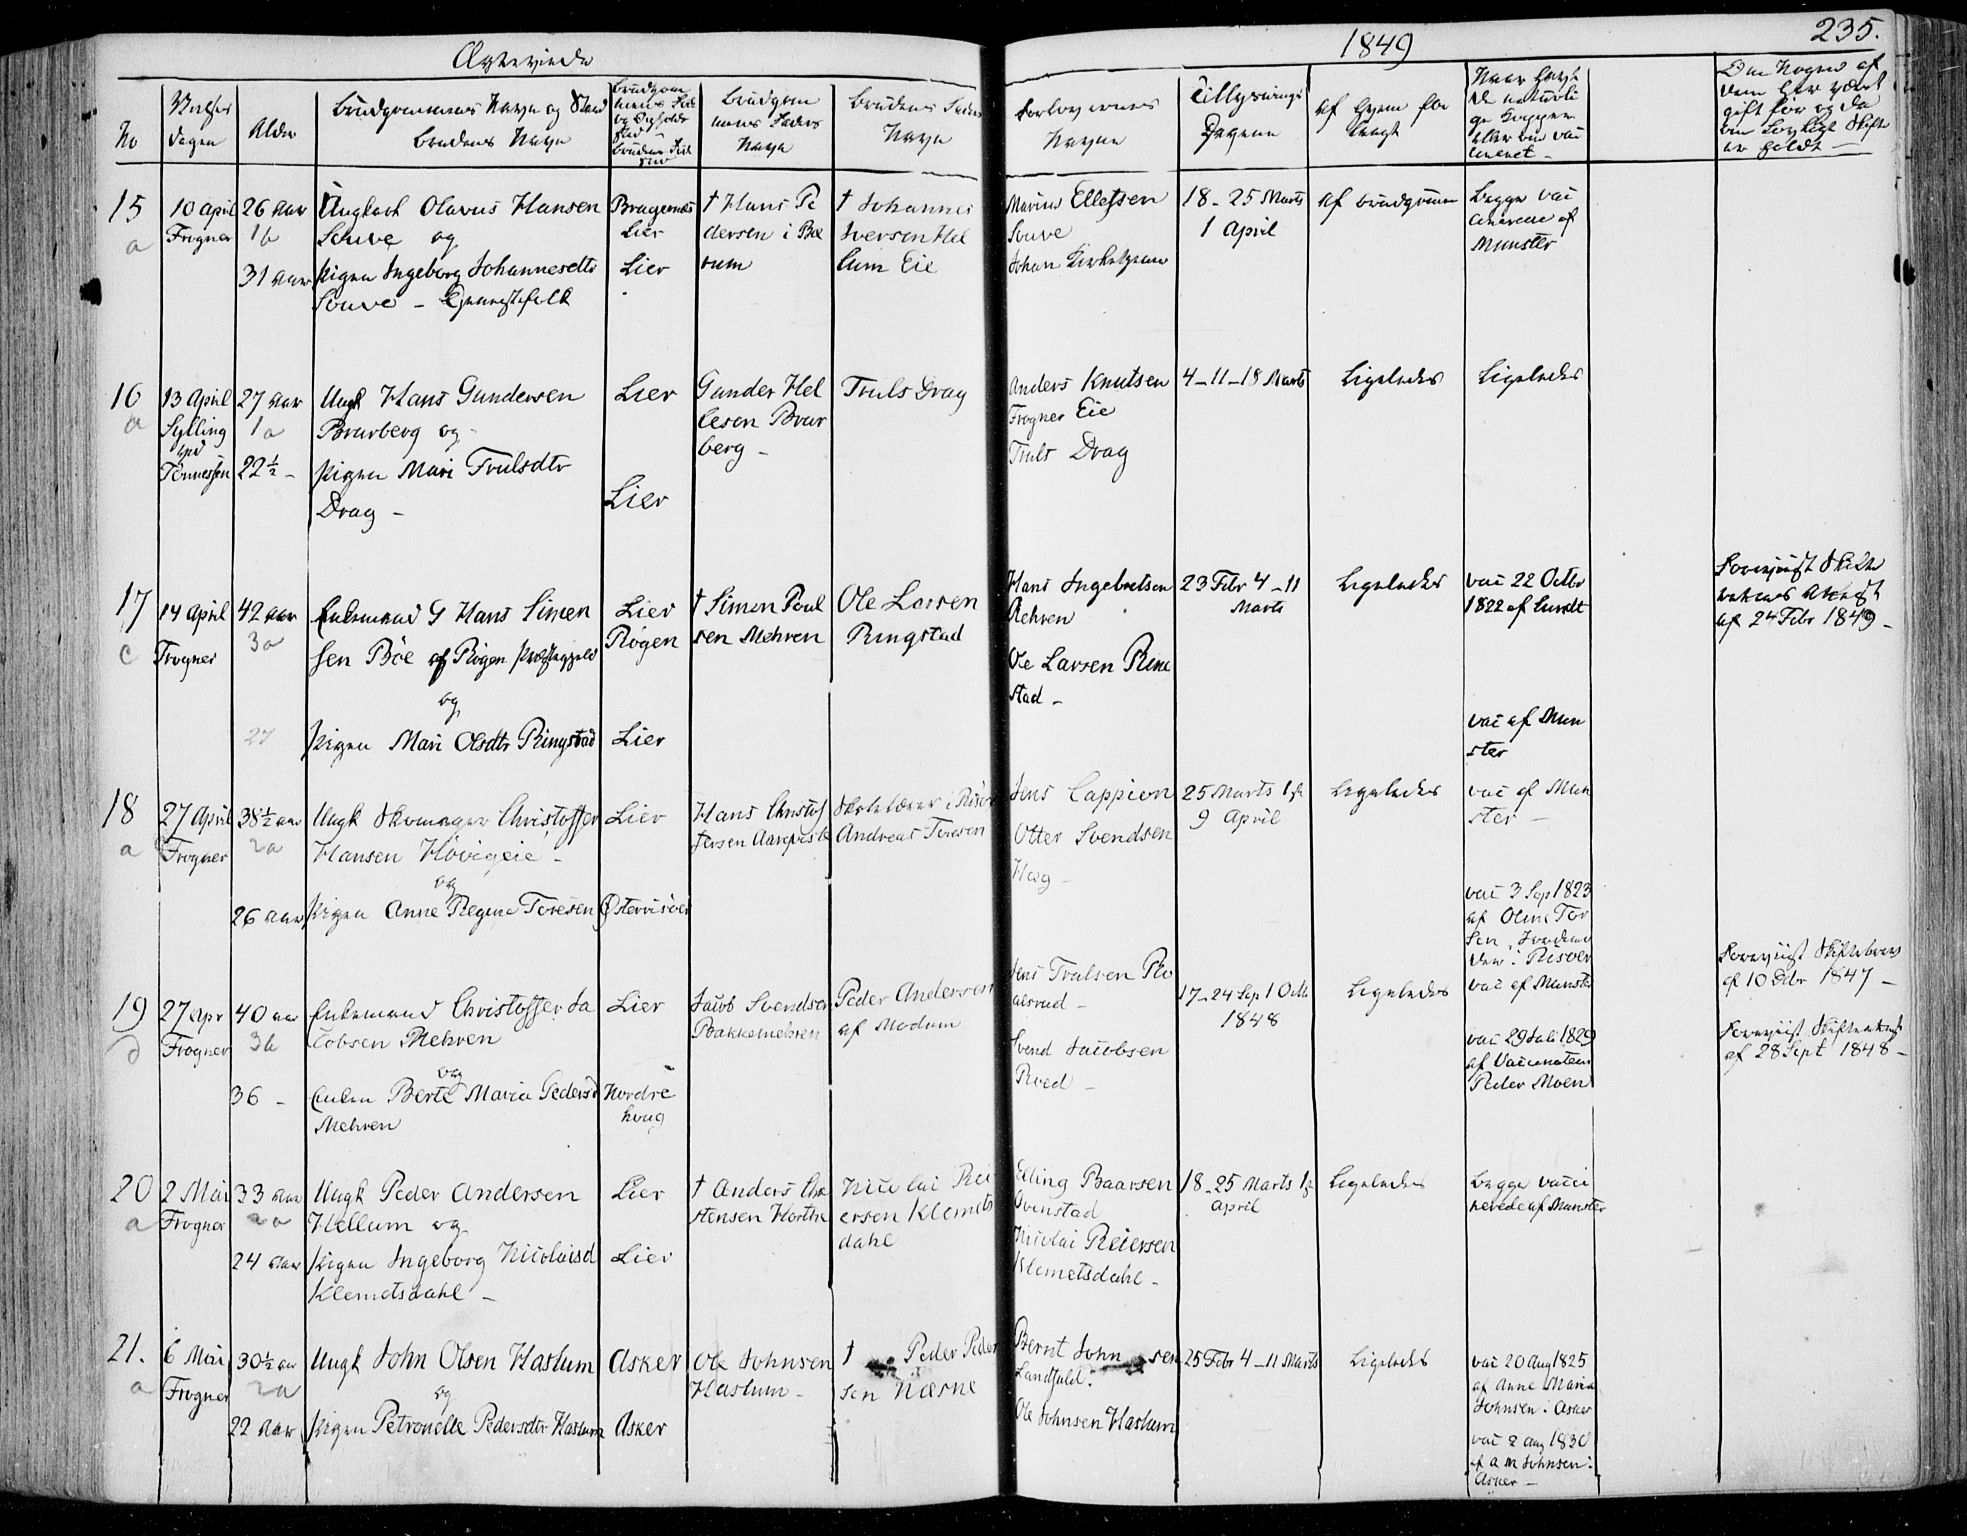 Ægteviede
1849
235.
No
Vielses
dagen
Alder
Brudgommens Navn og Stand
Brudens Navn
Brudgom
mens Faders
Navn
Brudens Faders
Navn
Forlovernes
Navne
Tillysnings
Dagene
af hvem for
langt
Naar havt
de naturli
ge Kopper
eller ere vac
cineret
Om Nogen af
dem har været
gift før og da
om lovligt Skifte
er holdt
15
a
10 April
Frogner
26 Aar
1b
31 Aar
Ungkarl Olavus Hansen
Souve og
Pigen Ingeborg Johannesdtr
Souve - Tjenestefolk
Bragernæs
Lier
Lier
† Hans Pe
dersen i Bæ
rum
† Johannes
Iversen Hel
lum Eie
Marius Ellefsen
Souve
Johan
18 - 25 Marts
1 April
af Brudgommen
Begge vac
cinerede af
Munster
16
a
13 April
Sylling
ved
Tønnessen
27 Aar
1a
22½ -
Ungk Hans Gundersen
Bvarberg og
Pigen Mari Trulsdtr
Drag -
Lier
Lier
Gunder Hel
lesen Bvar
berg -
Truls Drag
Anders Knutsen
Frogner Eie
Truls Drag
4 - 11 - 18 Marts
Ligeledes
Ligeledes
17
c
14 April
Frogner
42 Aar
3a
27
Enkemand G Hans Simen
sen Böe af Rögen Præstegjeld
og
Pigen Mari Olsdtr Ringstad
Lier
Rögen
Lier
† Simen Poul
sen Mehren
Ole Larsen
Ringstad
Hans Ingebretsen
Mehren
Ole Larsen Ring
stad -
23 Febr 4 - 11
Marts
Ligeledes
vac 22 Octbr
1822 af Lundt
vac af Mun
ster
Foreviist Skifte
rettens Attest
af 24 Febr 1849 -
18
a
27 April
Frogner
38½ aar
2a
26 Aar
Ungk Skomager Christoffer
Hansen Hövigeie -
og
Pigen Anne Regine Toresen
Lier
Østerrisöer
Hans Christof
fersen
Skolelærer i Risör
Andreas Toresen
Jens Cappion
Otter Svendsen
Hag -
25 Marts 1ste
9 April
Ligeledes
vac af Mun
ster -
vac 3 Sep 1823
af Oline Tor
sen, Jordemo
der i Risöer
19
d
27 Apr
Frogner
40 aar
3b
36 -
Enkemand Christoffer Ja
cobsen Mehren
og
Enken Berte Maria Pedersd
Mehren
Lier
Nordre
houg
Jacob Svendsen
Bakkemehren
Peder Andersen
af Modum
Jens Trulsen
Svend Jacobsen
Rved -
17 - 24 Sep 1 Octb
1848
Ligeledes
vac af Munster
vac 29 Juli 1829
af Vaccinateur
Peder Moen
Foreviist Skiftebrev
af 10 Dbr 1847 -
Foreviist Skifteattest
af 28 Sept 1848 -
20
a
2 Mai
Frogner
33 Aar
2a
24 Aar
Ungk Peder Andersen
Hellum og
Pigen Ingeborg Nicolaisd
Klemetsdahl -
Lier
Lier
† Anders Chri
stensen Horthe
Nicolai Rei
ersen Klemets
dahl
Elling Baarsen
Ovenstad
Nicolai Reiersen
Klemetsdahl -
18 - 25 Marts 1ste
April
Ligeledes
Begge vacci
nerede af Munster
21.
a
6 Mai
Frogner
30½ aar
2a
22 Aar
Ungk John Olsen Haslum
og
Pigen Petronelle Pedersdtr Haslum
Asker
Asker
Ole Johnsen
Haslum -
† Peder Peder
sen Næsne
Bernt Johnsen
Landfald.
Ole Johnsen Haslum
25 Febr 4 - 11 Marts
Ligeledes
vac 20 Aug 1825
af Anne Maria
Johnsen i Asker
vac 2 Aug 1830
af A M Johnsen i
Asker -